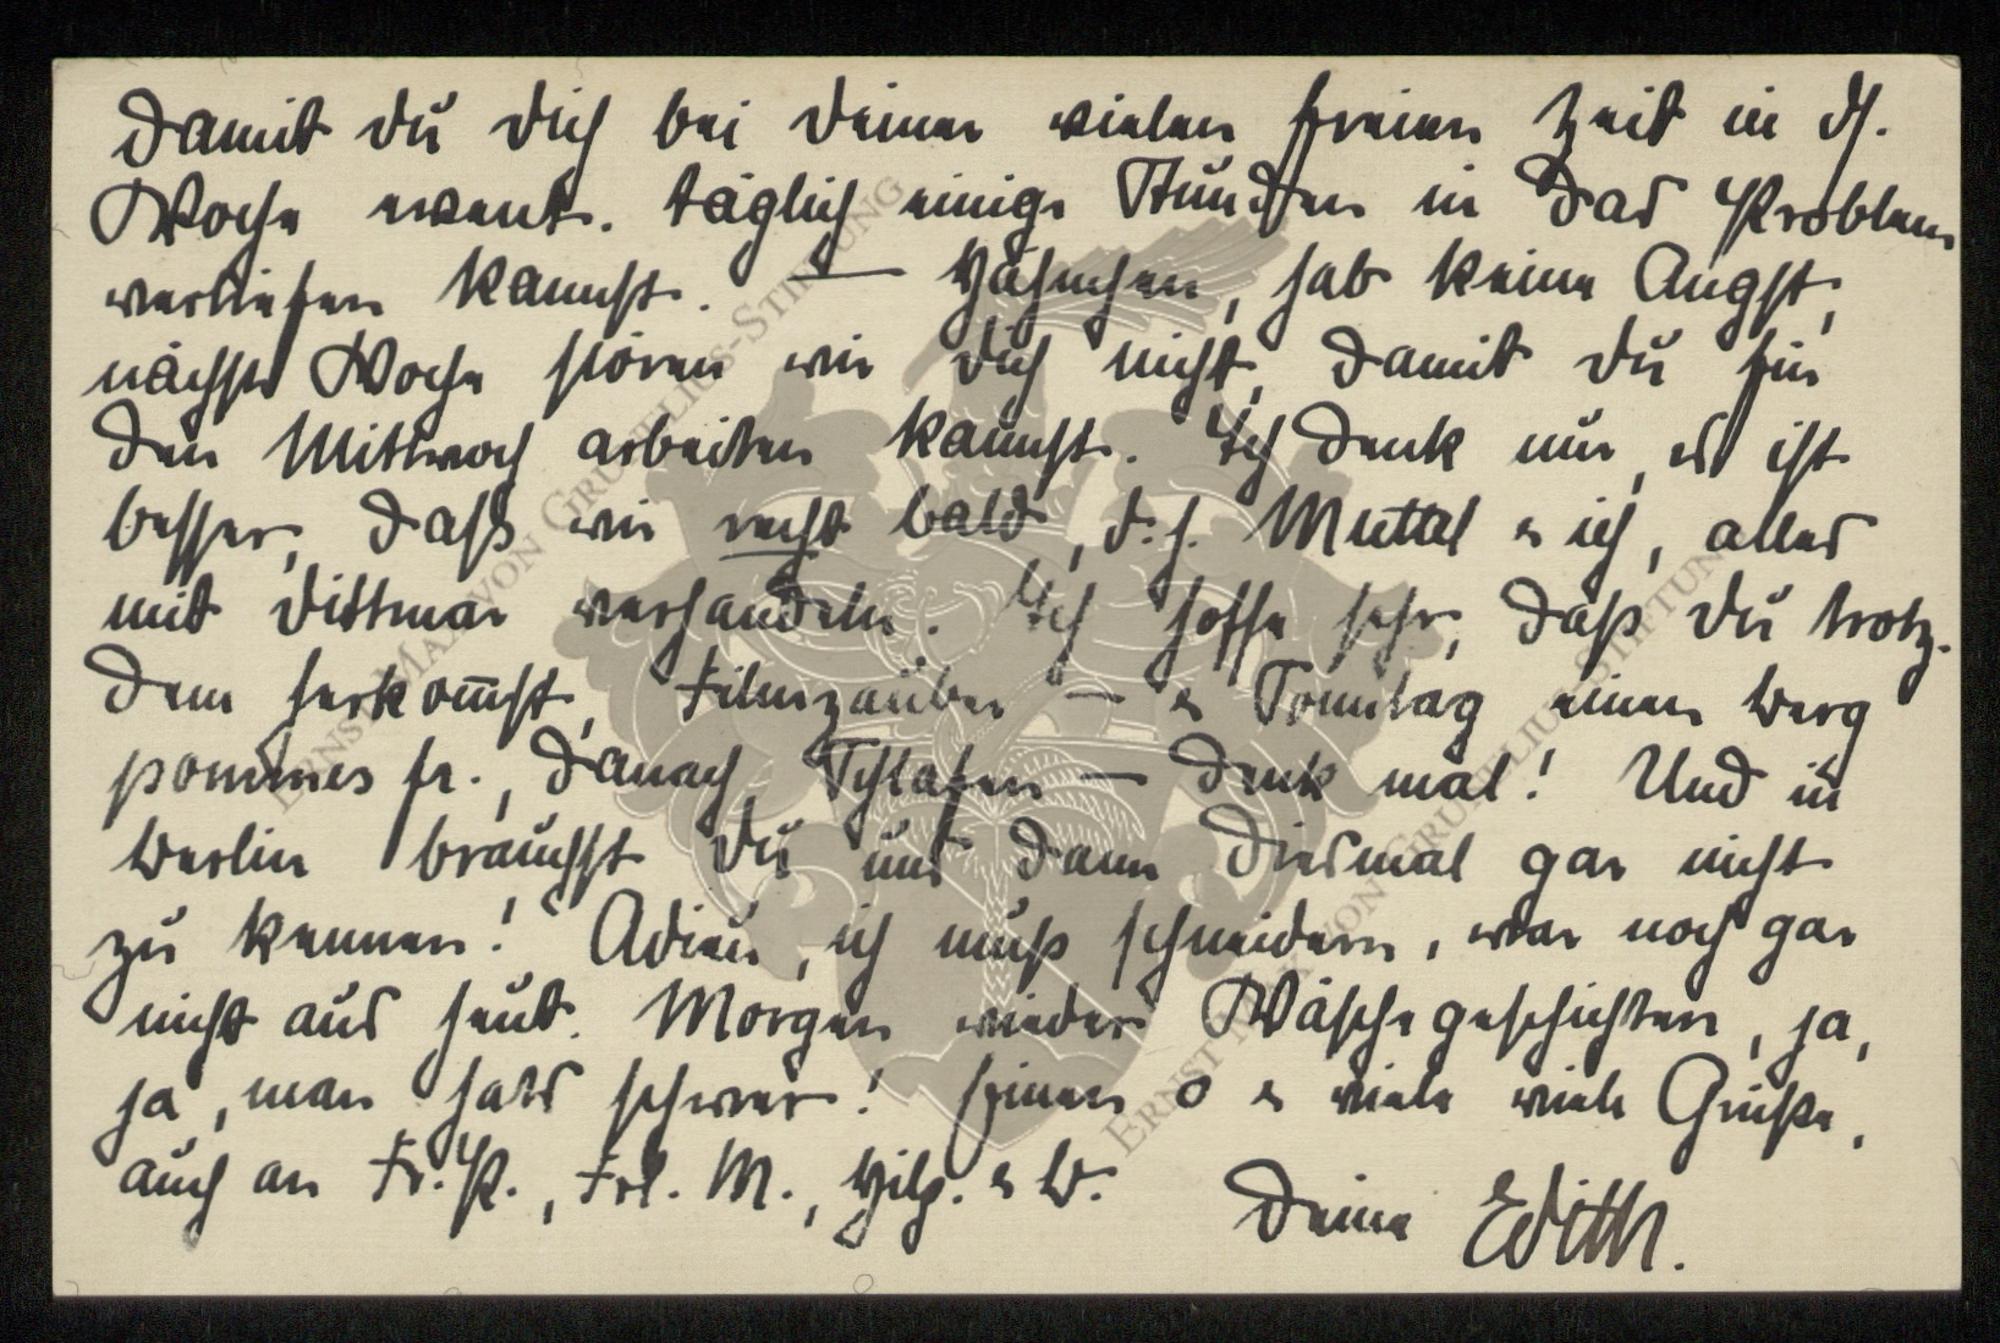 Damit Du Dich bei Deiner vielen freien Zeit in d.
Woche event. täglich einige Stunden in das Problem
vertiefen kannst. — Hähnchen, hab keine Angst,
nächste Woche stören wir Dich nicht, damit Du für
den Mittwoch arbeiten kannst. Ich denk nur, es ist
besser, daß wir recht bald, d. h. Muttel & ich, alles
mit Dittmar verhandeln. Ich hoffe sehr, daß Du trotz-
dem herkom̄st, Filmzauber — & Sonntag einen Berg
pommes fr., danach Schlafen — denk mal! Und in
Berlin brauchst Du uns dann diesmal gar nicht
zu kennen! Adieu, ich muß schneidern, war noch gar
nicht aus heut. Morgen wieder Wäschegeschichten, ja,
ja, man hats schwer! Feinen o & viele viele Grüße,
auch an Fr. P., Frl. M., Hilg. & B.
Deine Edith.
ERNST MAX VON GRUNELIUS-STIFTUNG
ERNST MAX VON GRUNELIUS-STIFTUNG